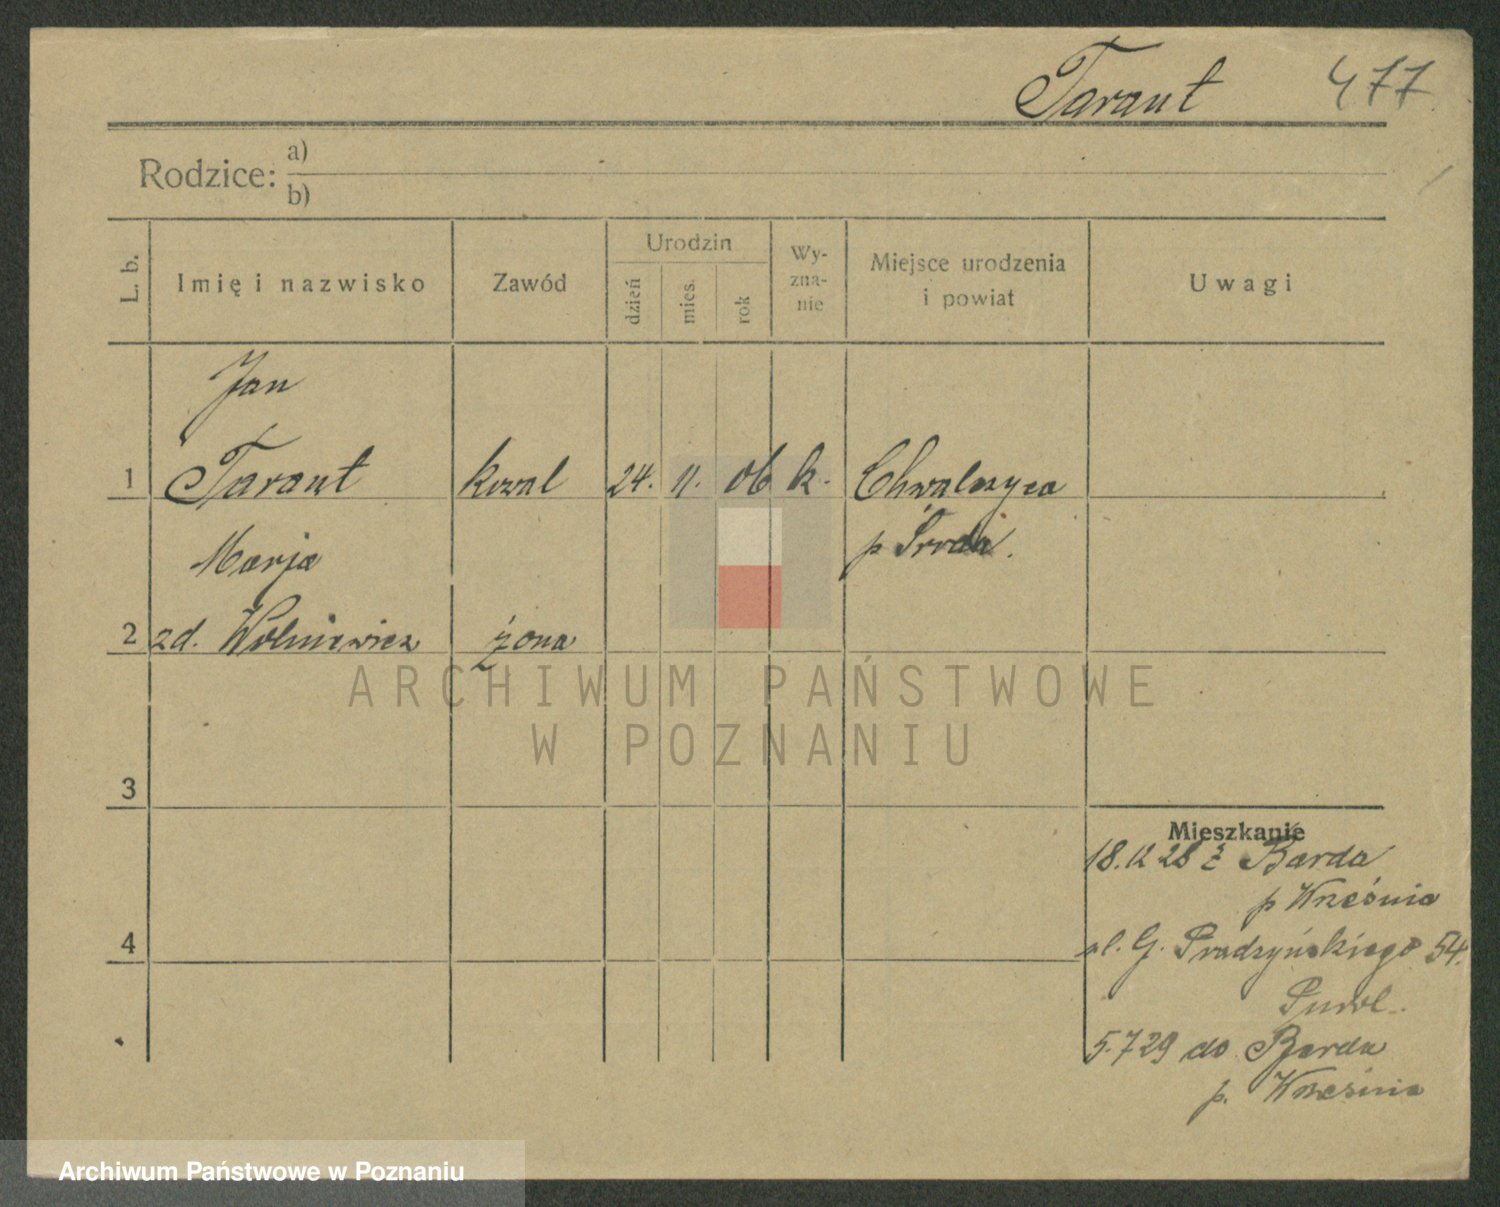 Tarant 477
Rodzice: a)
b)
L. b. Imię i nazwisko Zawód Urodzin dzień mies. rok Wy-zna-nie Miejsce urodzenia i powiat Uwagi
Jan
1 Tarant kowal 24. 11. 06 k. Chwalszyca
p Środa.
Marja
2 zd. Wolniewicz żona
ARCHIWUM PAŃSTWOWE
W POZNANIU
3
Mieszkanie
18.12 28 z Barda
p Września
4
ul. G. Prądzyńskiego 54.
5.7 29 do Barda
p. Września
Archiwum Państwowe w Poznaniu